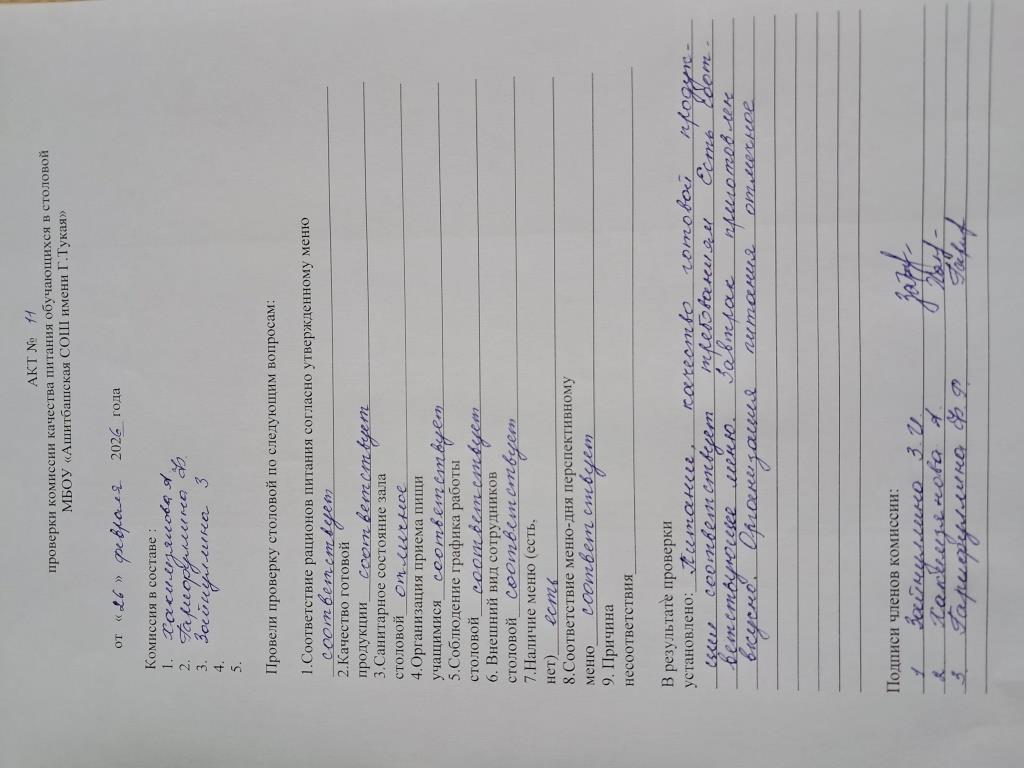 АКТ № 11
проверки комиссии качества питания обучающихся в столовой
МБОУ «Ашитбашская СОШ имени Г.Тукая»
от «26» февраля 2026 года
Комиссия в составе :
1. А.
2. Гарифуллина Ф.
3. Зайнуллина З
4.
5.
Провели проверку столовой по следующим вопросам:
1.Соответствие рационов питания согласно утвержденному меню
соответствует
2.Качество готовой
продукции соответствует
3.Санитарное состояние зала
столовой отличное
4.Организация приема пищи
учащимися соответствует
5.Соблюдение графика работы
столовой соответствует
6. Внешний вид сотрудников
столовой соответствует
7.Наличие меню (есть,
нет) есть
8.Соответствие меню-дня перспективному
меню соответствует
9. Причина
несоответствия
В результате проверки
установлено: Питание, качество готовой продук-
ции соответствует требованиям Есть соот-
ветствующее меню. Завтрак приготовлен
вкусно. Организация питания отличное
Подписи членов комиссии:
1 Зайнуллина З.И.
2 А.
3 Гарифуллина Ф. Ф. Гариф